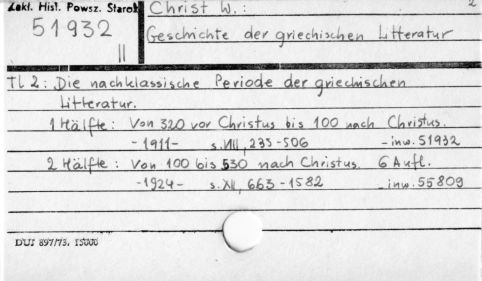 Zakł. Hist. Powsz. Staroż
Christ W.:
2
51932
II
Geschichte der griechischen Litteratur
Tl 2: Die nachklassische Periode der griechischen
Litteratur.
1 Hälfte: Von 320 vor Christus bis 100 nach Christus.
-1911- s. VIII, 235-506 -inw. 51932
2 Hälfte: Von 100 bis 530 nach Christus. 6 Aufl.
-1924- s. XII, 663-1582 -inw. 55809
DUJ 897/73. 15000